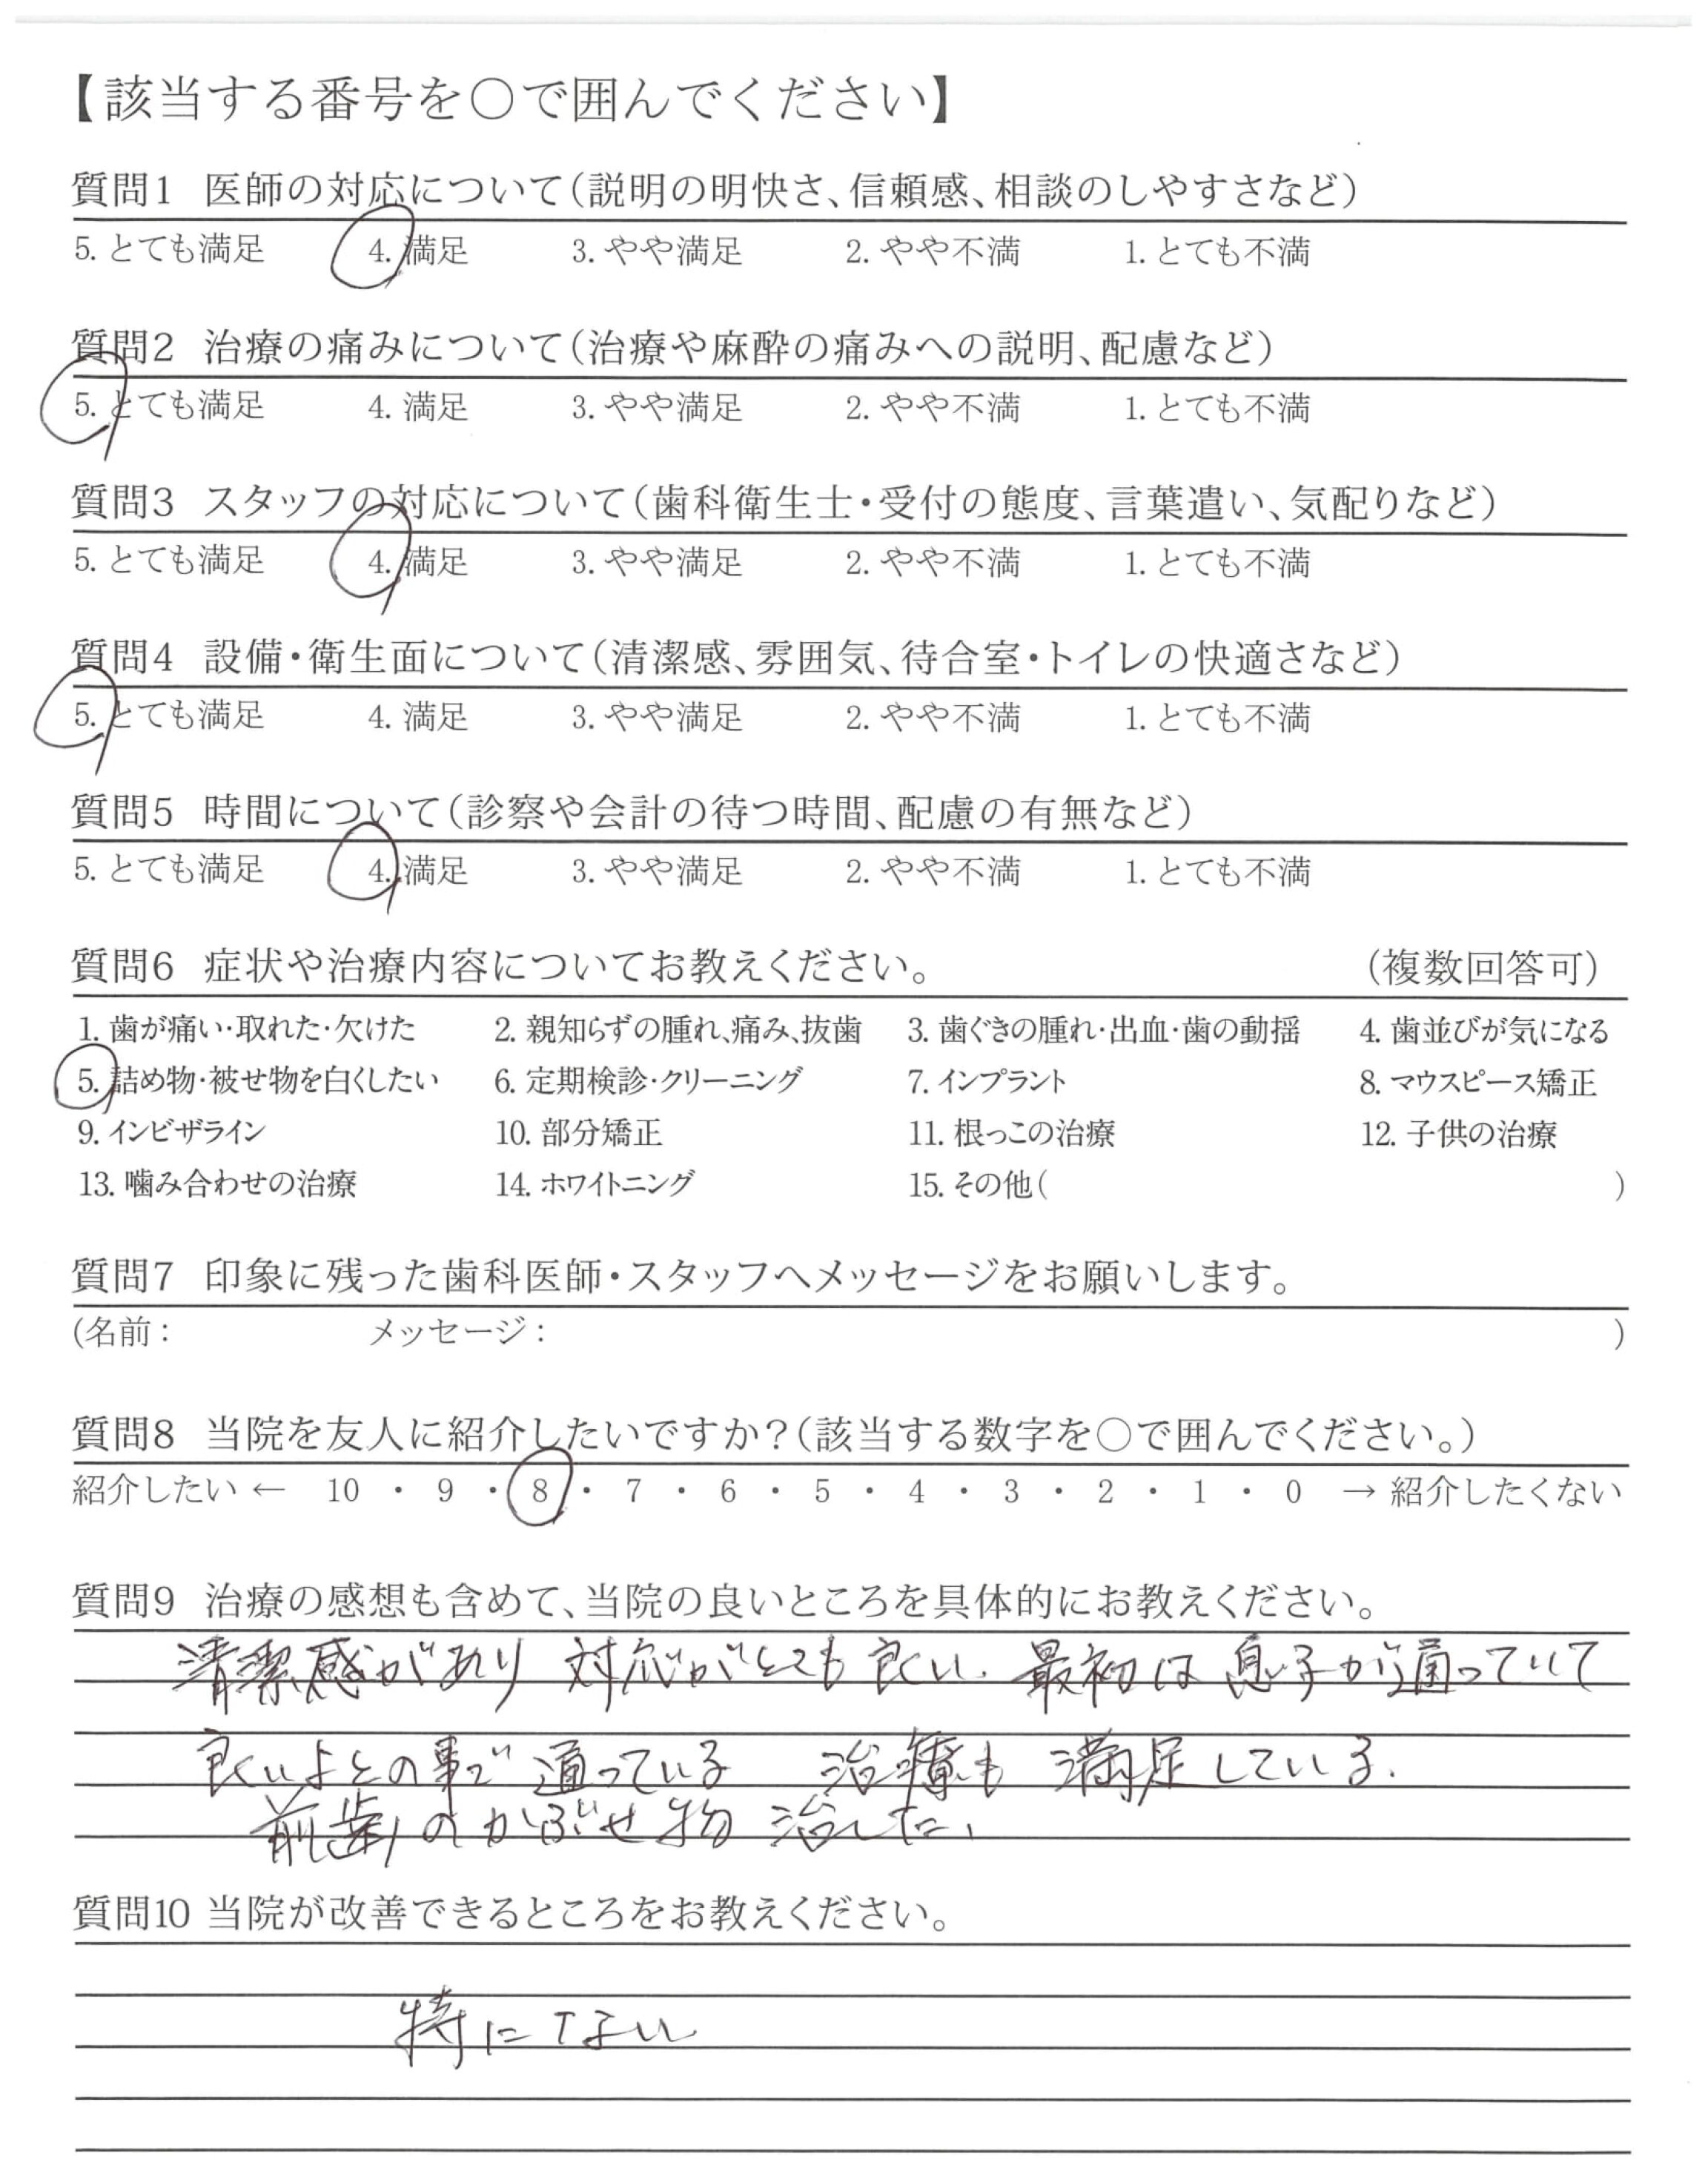 【該当する番号を○で囲んでください】
質問1 医師の対応について(説明の明快さ、信頼感、相談のしやすさなど)
5. とても満足 4. 満足 3. やや満足 2. やや不満 1. とても不満
質問2 治療の痛みについて(治療や麻酔の痛みへの説明、配慮など)
5. とても満足 4. 満足 3. やや満足 2. やや不満 1. とても不満
質問3 スタッフの対応について(歯科衛生士・受付の態度、言葉遣い、気配りなど)
5. とても満足 4. 満足 3. やや満足 2. やや不満 1. とても不満
質問4 設備・衛生面について(清潔感、雰囲気、待合室・トイレの快適さなど)
5. とても満足 4. 満足 3. やや満足 2. やや不満 1. とても不満
質問5 時間について(診察や会計の待つ時間、配慮の有無など)
5. とても満足 4. 満足 3. やや満足 2. やや不満 1. とても不満
質問6 症状や治療内容についてお教えください。 (複数回答可)
1. 歯が痛い・取れた・欠けた 2. 親知らずの腫れ、痛み、抜歯 3. 歯ぐきの腫れ・出血・歯の動揺 4. 歯並びが気になる
5. 詰め物・被せ物を白くしたい 6. 定期検診・クリーニング 7. インプラント 8. マウスピース矯正
9. インビザライン 10. 部分矯正 11. 根っこの治療 12. 子供の治療
13. 噛み合わせの治療 14. ホワイトニング 15. その他( )
質問7 印象に残った歯科医師・スタッフへメッセージをお願いします。
(名前: メッセージ: )
質問8 当院を友人に紹介したいですか?(該当する数字を○で囲んでください。)
紹介したい ← 10 ・ 9 ・ 8 ・ 7 ・ 6 ・ 5 ・ 4 ・ 3 ・ 2 ・ 1 ・ 0 → 紹介したくない
質問9 治療の感想も含めて、当院の良いところを具体的にお教えください。
清潔感があり 対応がとても良い. 最初は 息子が通っていて
良いよとの事で 通っている 治療も 満足している.
前歯のかぶせ物 治した、
質問10 当院が改善できるところをお教えください。
特にない